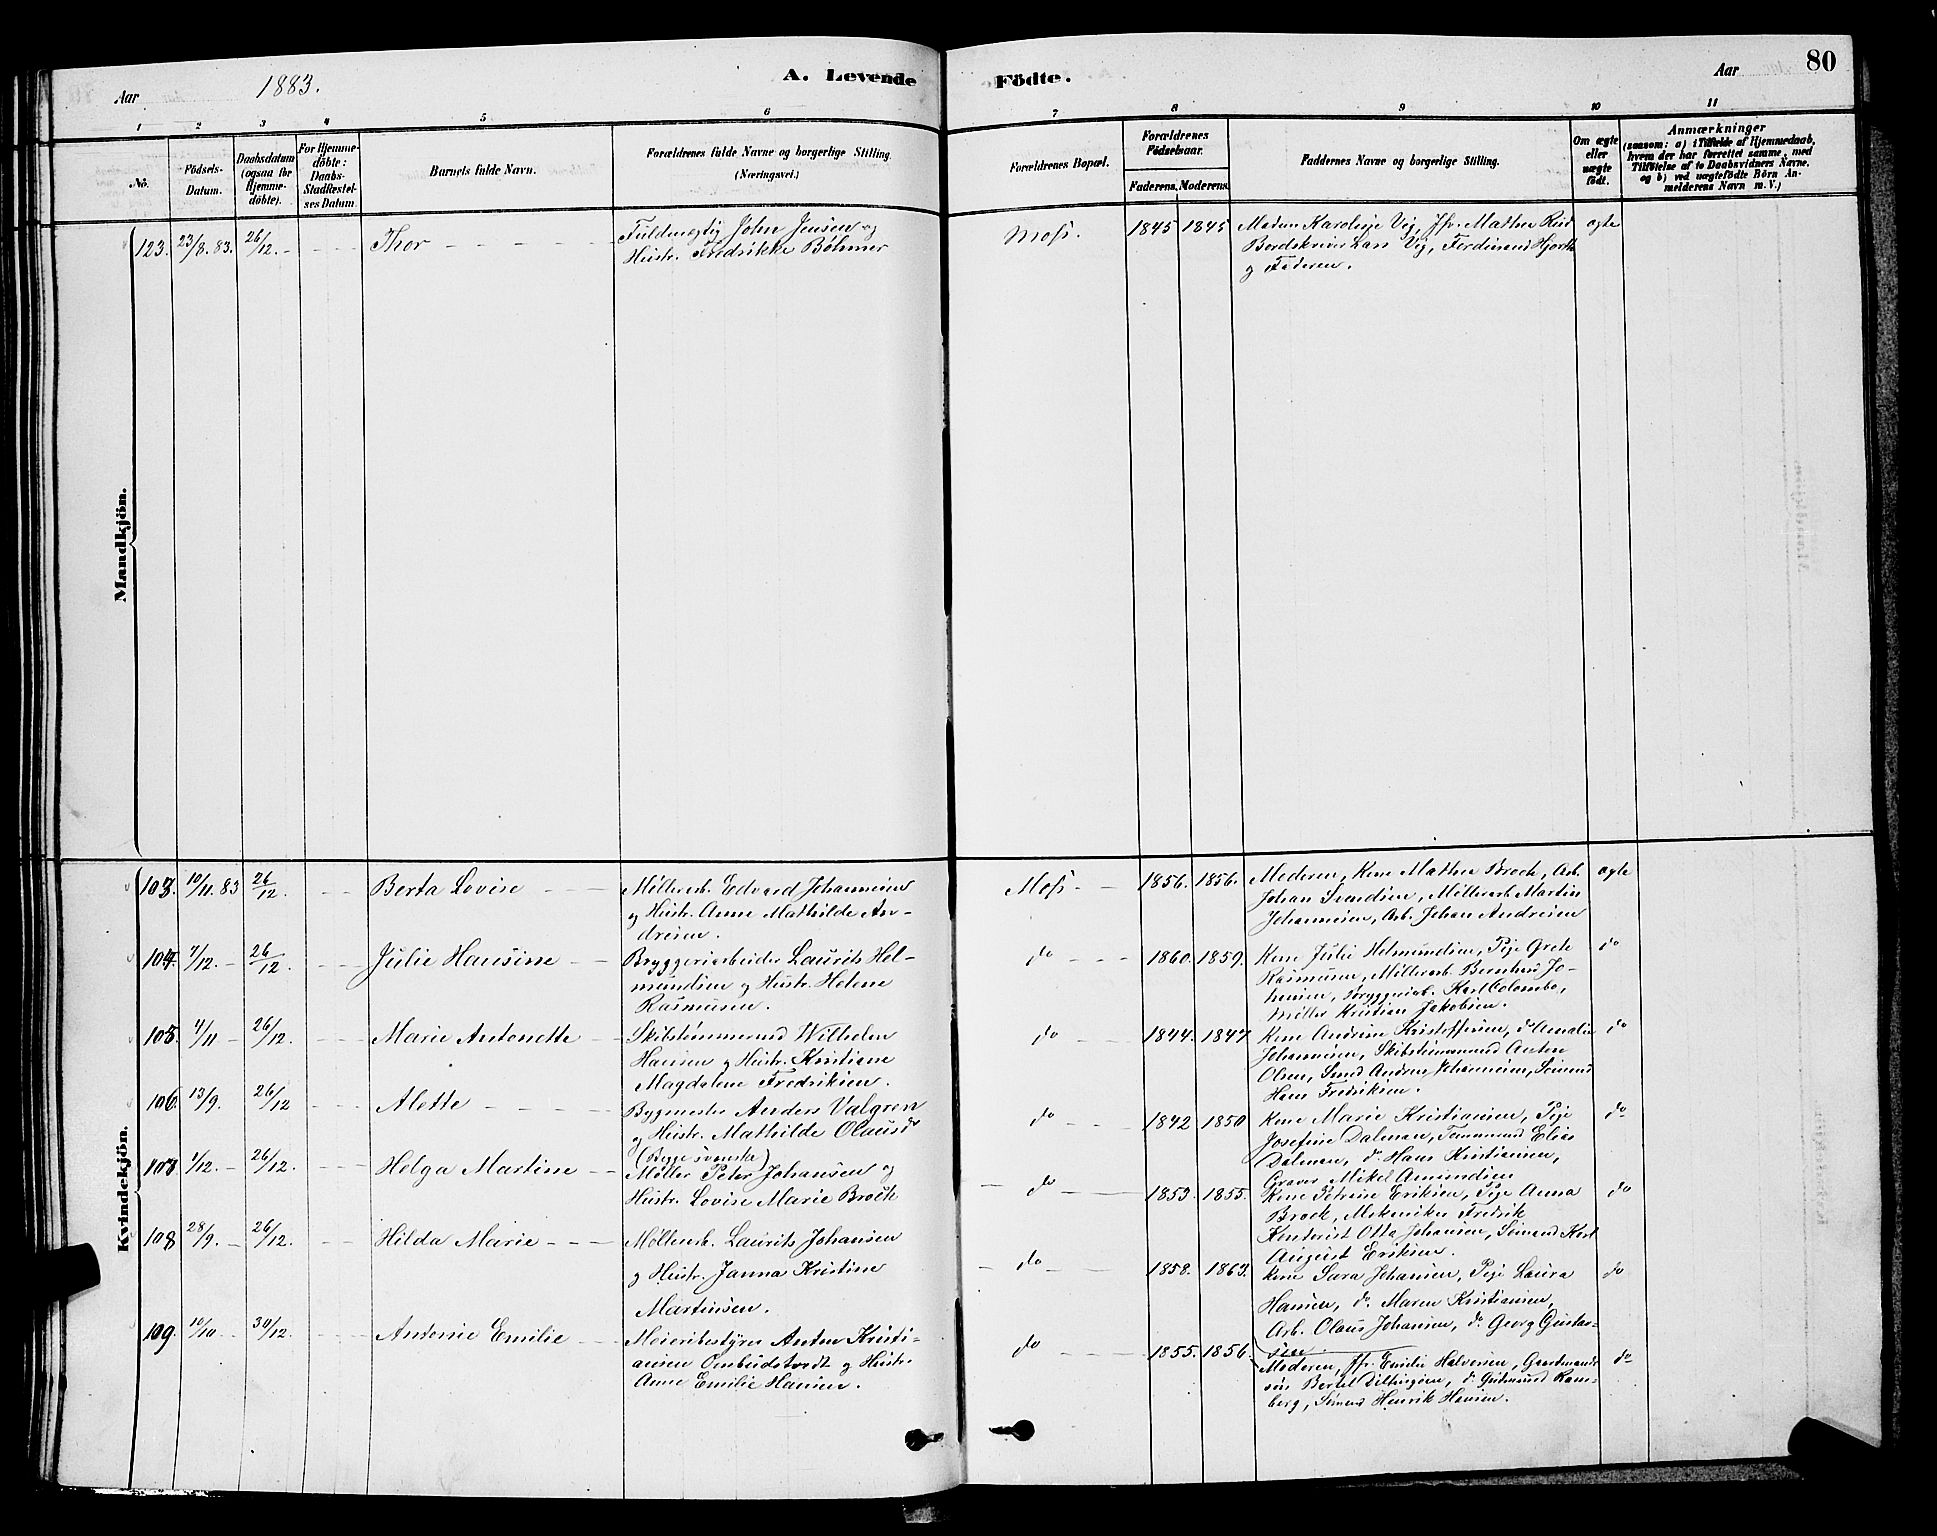 Aar 1883. A. Levende
Födte. Aar 80
1 2 3 4 5 6
7 8 9 10 11
No.
Födsels-
Datum.
Daabsdatum
(ogsaa for
Hjemme-
döbte).
For Hjemme-
döbte:
Daabs-
Stadfæstel-
ses Datum.
Barnets fulde Navn.
Forældrenes fulde Navne og borgerlige Stilling.
(Næringsvei.)
Forældrenes Bopæl.
Forældrenes
Födselsaar.
Faderens. Moderens.
Faddernes Navne og borgerlige Stilling.
Om ægte
eller
uægte
født.
Anmærkninger
(saasom: a) i Tilfælde af Hjemmedaab,
hvem der har forrettet samme, med
Tilföielse af to Daabsvidners Navne,
og b) ved uægtefödte Börn An-
melderens Navn m. V.)
Mandkjön.
123. 23/8. 83. 26/12. - Thor
Fuldmegtig John Jensen og
Hustr. Fredrikke Böhmer
Moss. 1845 1845
Madam Karoline Vig, Jfr. Mathea Rud
Bordskriver Lars Vig, Ferdinand Hjorth
og Faderen.
ægte
Kvindekjön.
103. 10/11. 83 26/12. Berta Lovise
Möllerarb. Edvard Johannesen
og Hustr. Anne Mathilde An-
dresen.
Moss 1856. 1856.
Moderen, Kone Mathea Brock, Arb.
Johan Svendsen, Möllerarb Martin
Johannesen, Arb. Johan Andresen
ægte
104. 7/12. - 26/12. Julie Hansine
Bryggeriarbeider Laurits Hel-
mundsen og Hustr. Helene
Rasmusen.
do 1860. 1859.
Kone Julie Helmundsen, Pige Grete
Rasmusen, Möllerarb. Bernhard Jo-
hansen, Bryggeriarb. Karl Colombo,
Möller Kristian Jakobsen.
do
105. 4/11 - 26/12. Marie Antonette
Skibstömmermd Wilhelm
Hansen og Hustr. Kristiane
Magdalene Fredriksen.
do 1844. 1847
Kone Andrine Kristoffersen, do Amalie
Johannesen, Skibstömmermd Anton
Olsen, Smed Andreas Johannesen, Sömand
Hans Fredriksen.
do
106. 13/9. 26/12 Alette
Bygmester Anders Valgren
og Hustr. Mathilde Olausdr
(Begge svenske)
do 1842 1850
Kone Marie Kristiansen, Pige
Josefine Dalman, Tömmermd Elias
Dalman, do Hans Kristiansen,
Graver Mikel Amundsen
do
107 1/12. - 26/12. Helga Martine
Möller Peter Johansen og
Hustr. Lovise Marie Brock
do 1853. 1855.
Kone Petrine Eriksen, Pige Anna
Brock, Mekaniker Fredrik
Kontorist Otto Johansen, Sömand Karl
August Eriksen.
do
108 28/9. - 26/12. Hilda Marie
Möllerarb. Laurits Johansen
og Hustr. Janna Kristine
Martinsen.
do 1858. 1863.
Kone Sara Johansen, Pige Laura
Hansen, do. Maren Kristiansen,
Arb. Olaus Johansen, do. Georg Gustav-
sen.
do
109. 10/10 - 30/12. Antonie Emilie
Meieribestyrer Anton Kristi-
ansen Ombudstvedt og Hustr.
Anne Emilie Hansen.
do 1855. 1856.
Moderen, Jfr. Emilie Halvorsen, Gaardmands-
sön Bertel Dillingöen, do. Gudmund Ram-
berg, Sömand Henrik Hansen.
do